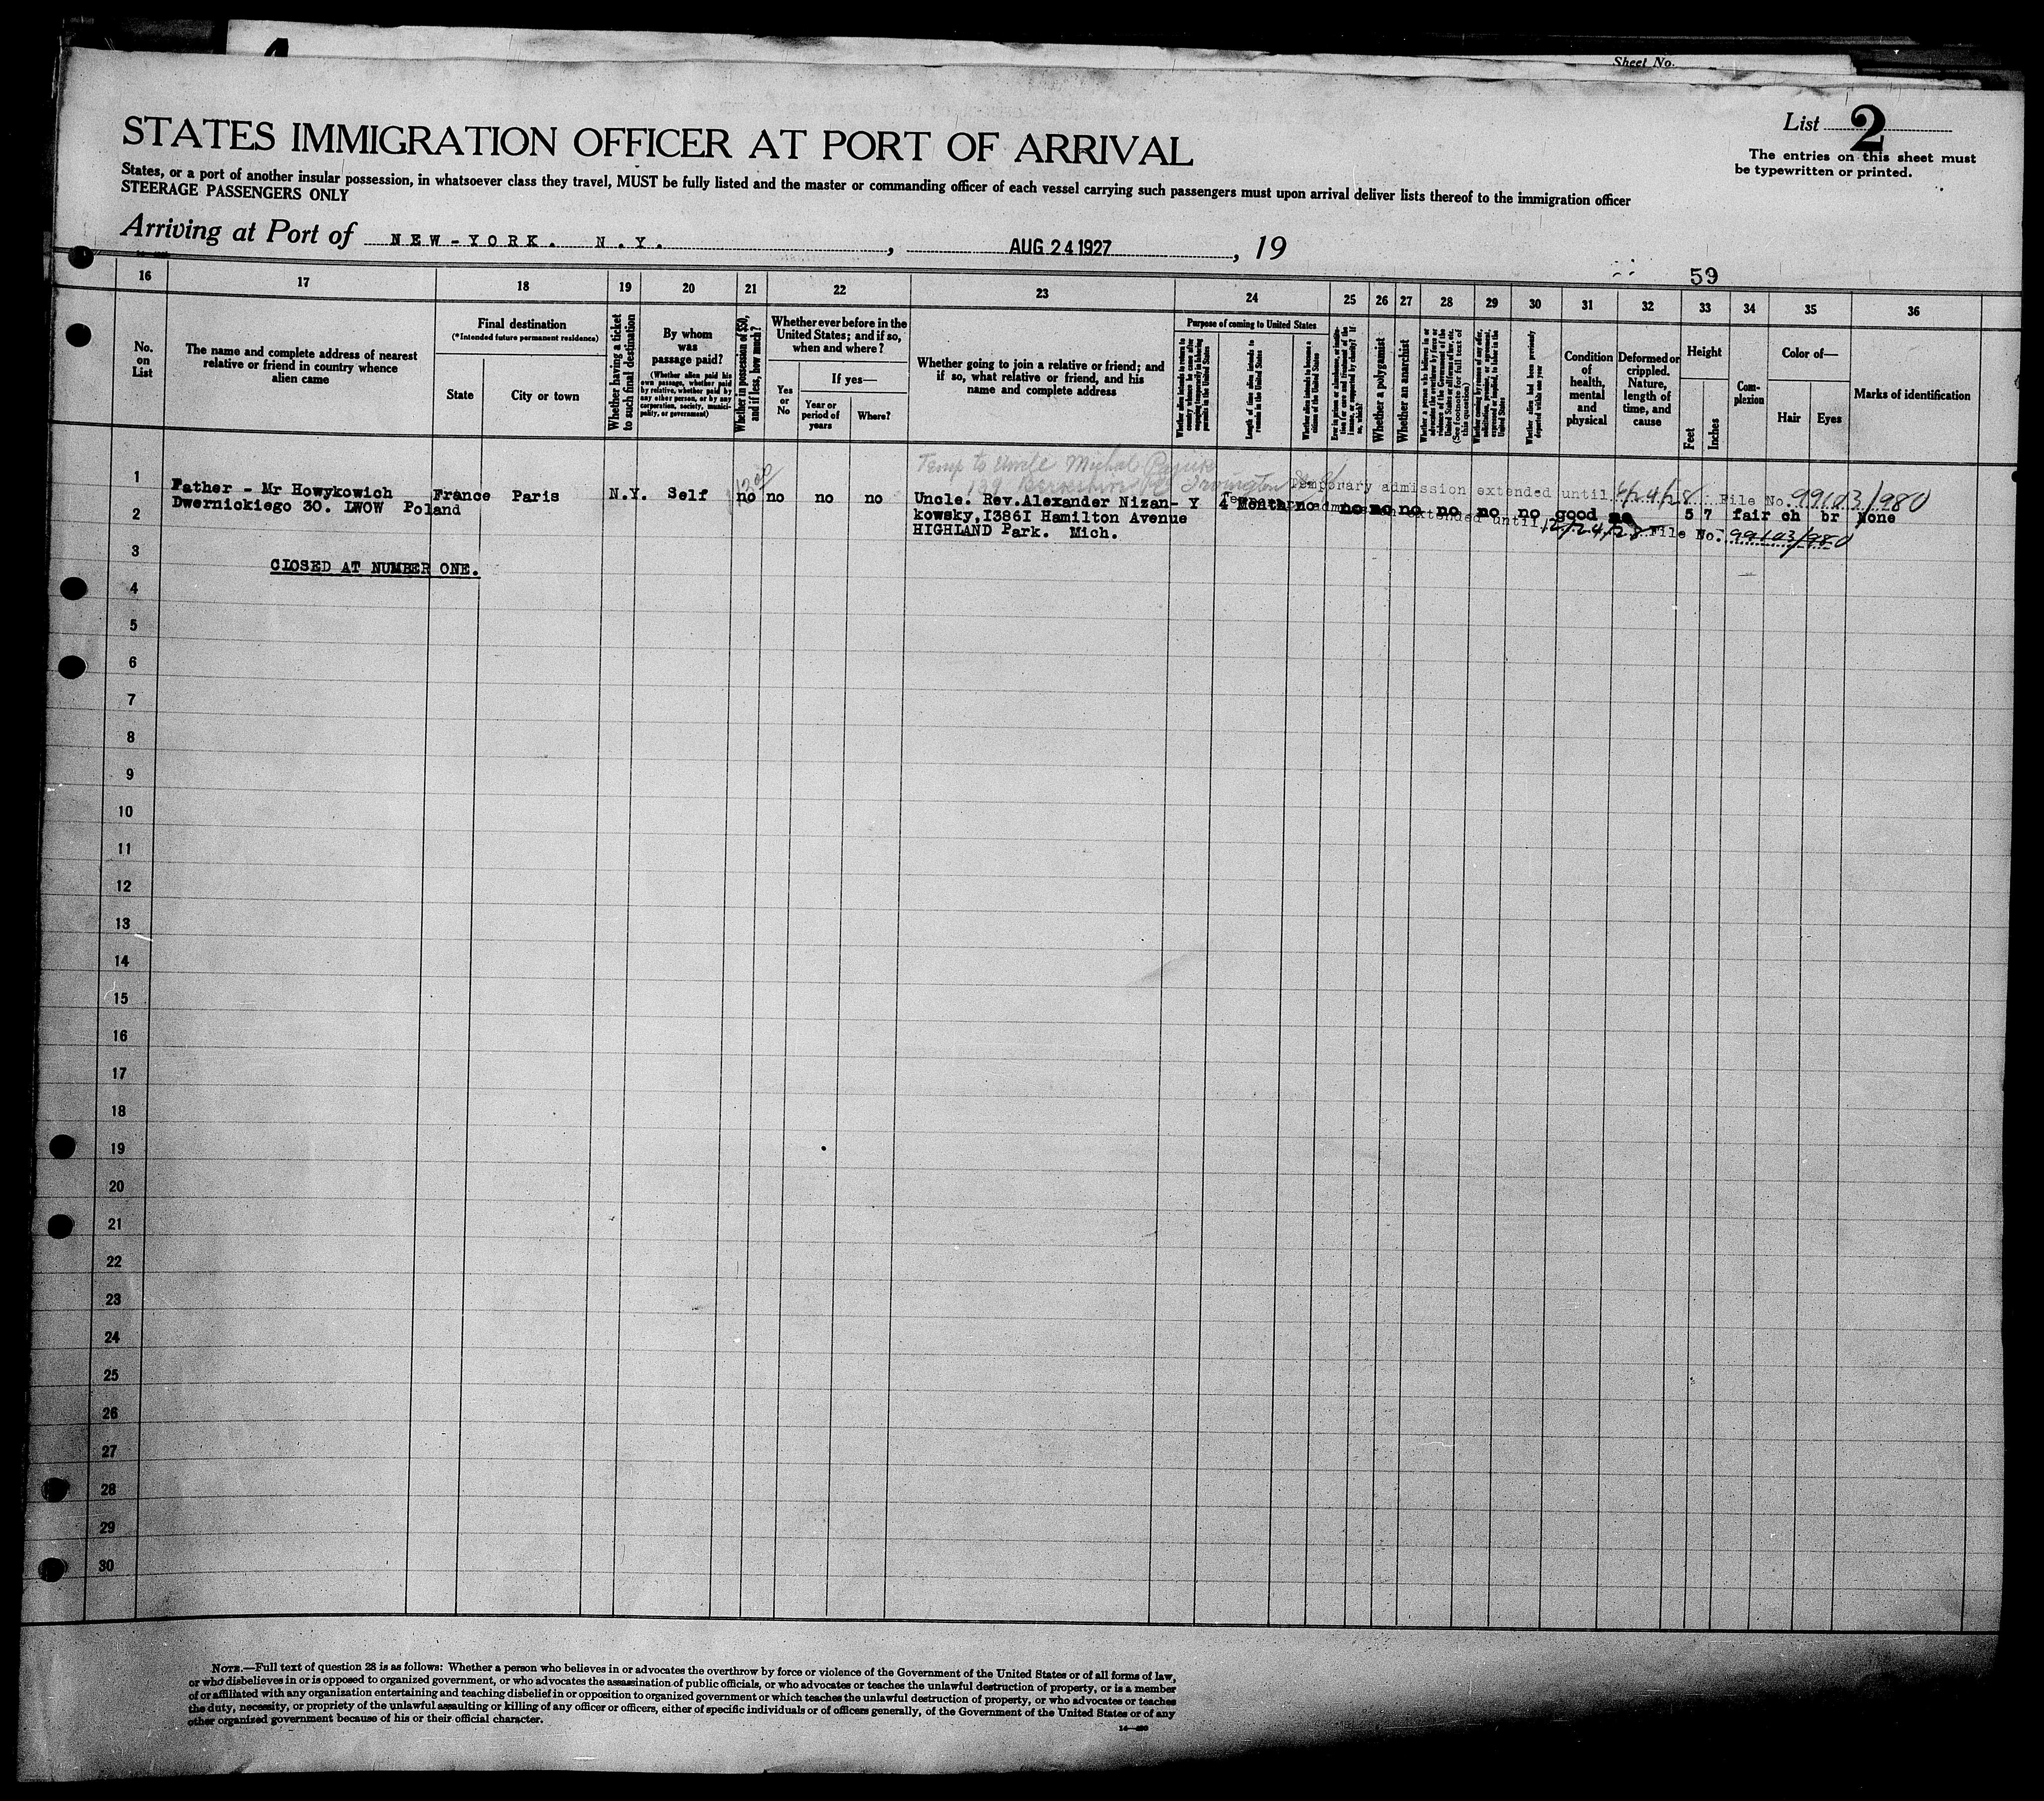 Sheet No.
List 2
STATES IMMIGRATION OFFICER AT PORT OF ARRIVAL
The entries on this sheet must
be typewritten or printed.
States, or a port of another insular possession, in whatsoever class they travel, MUST be fully listed and the master or commanding officer of each vessel carrying such passengers must upon arrival deliver lists thereof to the immigration officer
STEERAGE PASSENGERS ONLY
Arriving at Port of NEW-YORK. N.Y. , AUG 24 1927 , 19
59
16 17 18 19 20 21 22 23 24 25 26 27 28 29 30 31 32 33 34 35 36
No.
on
List
The name and complete address of nearest
relative or friend in country whence
alien came
Final destination
(*Intended future permanent residence)
State
City or town
Whether having a ticket
to such final destination
By whom
was
passage paid?
(Whether alien paid his
own passage, whether paid
by relative, whether paid by
any other person, or by any
corporation, society, munici-
pality, or government)
Whether in possession of $50,
and if less, how much?
Whether ever before in the
United States; and if so,
when and where?
Yes
or
No
If yes—
Year or
period of
years
Where?
Whether going to join a relative or friend; and
if so, what relative or friend, and his
name and complete address
Purpose of coming to United States
Whether alien intends to return to
country whence he came after
engaging temporarily in laboring
pursuits in the United States
Length of time alien intends to
remain in the United States
Whether alien intends to become a
citizen of the United States
Whether a polygamist
Whether an anarchist
(See footnote for full text of
this question)
Whether alien had been previously
deported within one year
Condition
of
health,
mental
and
physical
Deformed or
crippled.
Nature,
length of
time, and
cause
Height
Feet
Inches
Com-
plexion
Color of—
Hair
Eyes
Marks of identification
Temp to Uncle Michal
139 Irvington
Temporary admission extended until 6/24/28 File No. 99103/980
1
Father - Mr Howykowich France Paris N.Y. Self no no no no Uncle. Rev.Alexander Nizan- Y 4 Month no no no no no no no good no 5 7 fair ch br None
2
Dwernickiego 30. LWOW Poland
kowsky,I386I Hamilton Avenue
HIGHLAND Park. Mich.
Temporary admission extended until 12/24/28 File No. 99103/980
3
CLOSED AT NUMBER ONE.
4
5
6
7
8
9
10
11
12
13
14
15
16
17
18
19
20
21
22
23
24
25
26
27
28
29
30
NOTE.—Full text of question 28 is as follows: Whether a person who believes in or advocates the overthrow by force or violence of the Government of the United States or of all forms of law,
or who disbelieves in or is opposed to organized government, or who advocates the assassination of public officials, or who advocates or teaches the unlawful destruction of property, or is a member
of or affiliated with any organization entertaining and teaching disbelief in or opposition to organized government or which teaches the unlawful destruction of property, or who advocates or teaches
the duty, necessity, or propriety of the unlawful assaulting or killing of any officer or officers, either of specific individuals or of officers generally, of the Government of the United States or of any
other organized government because of his or their official character.